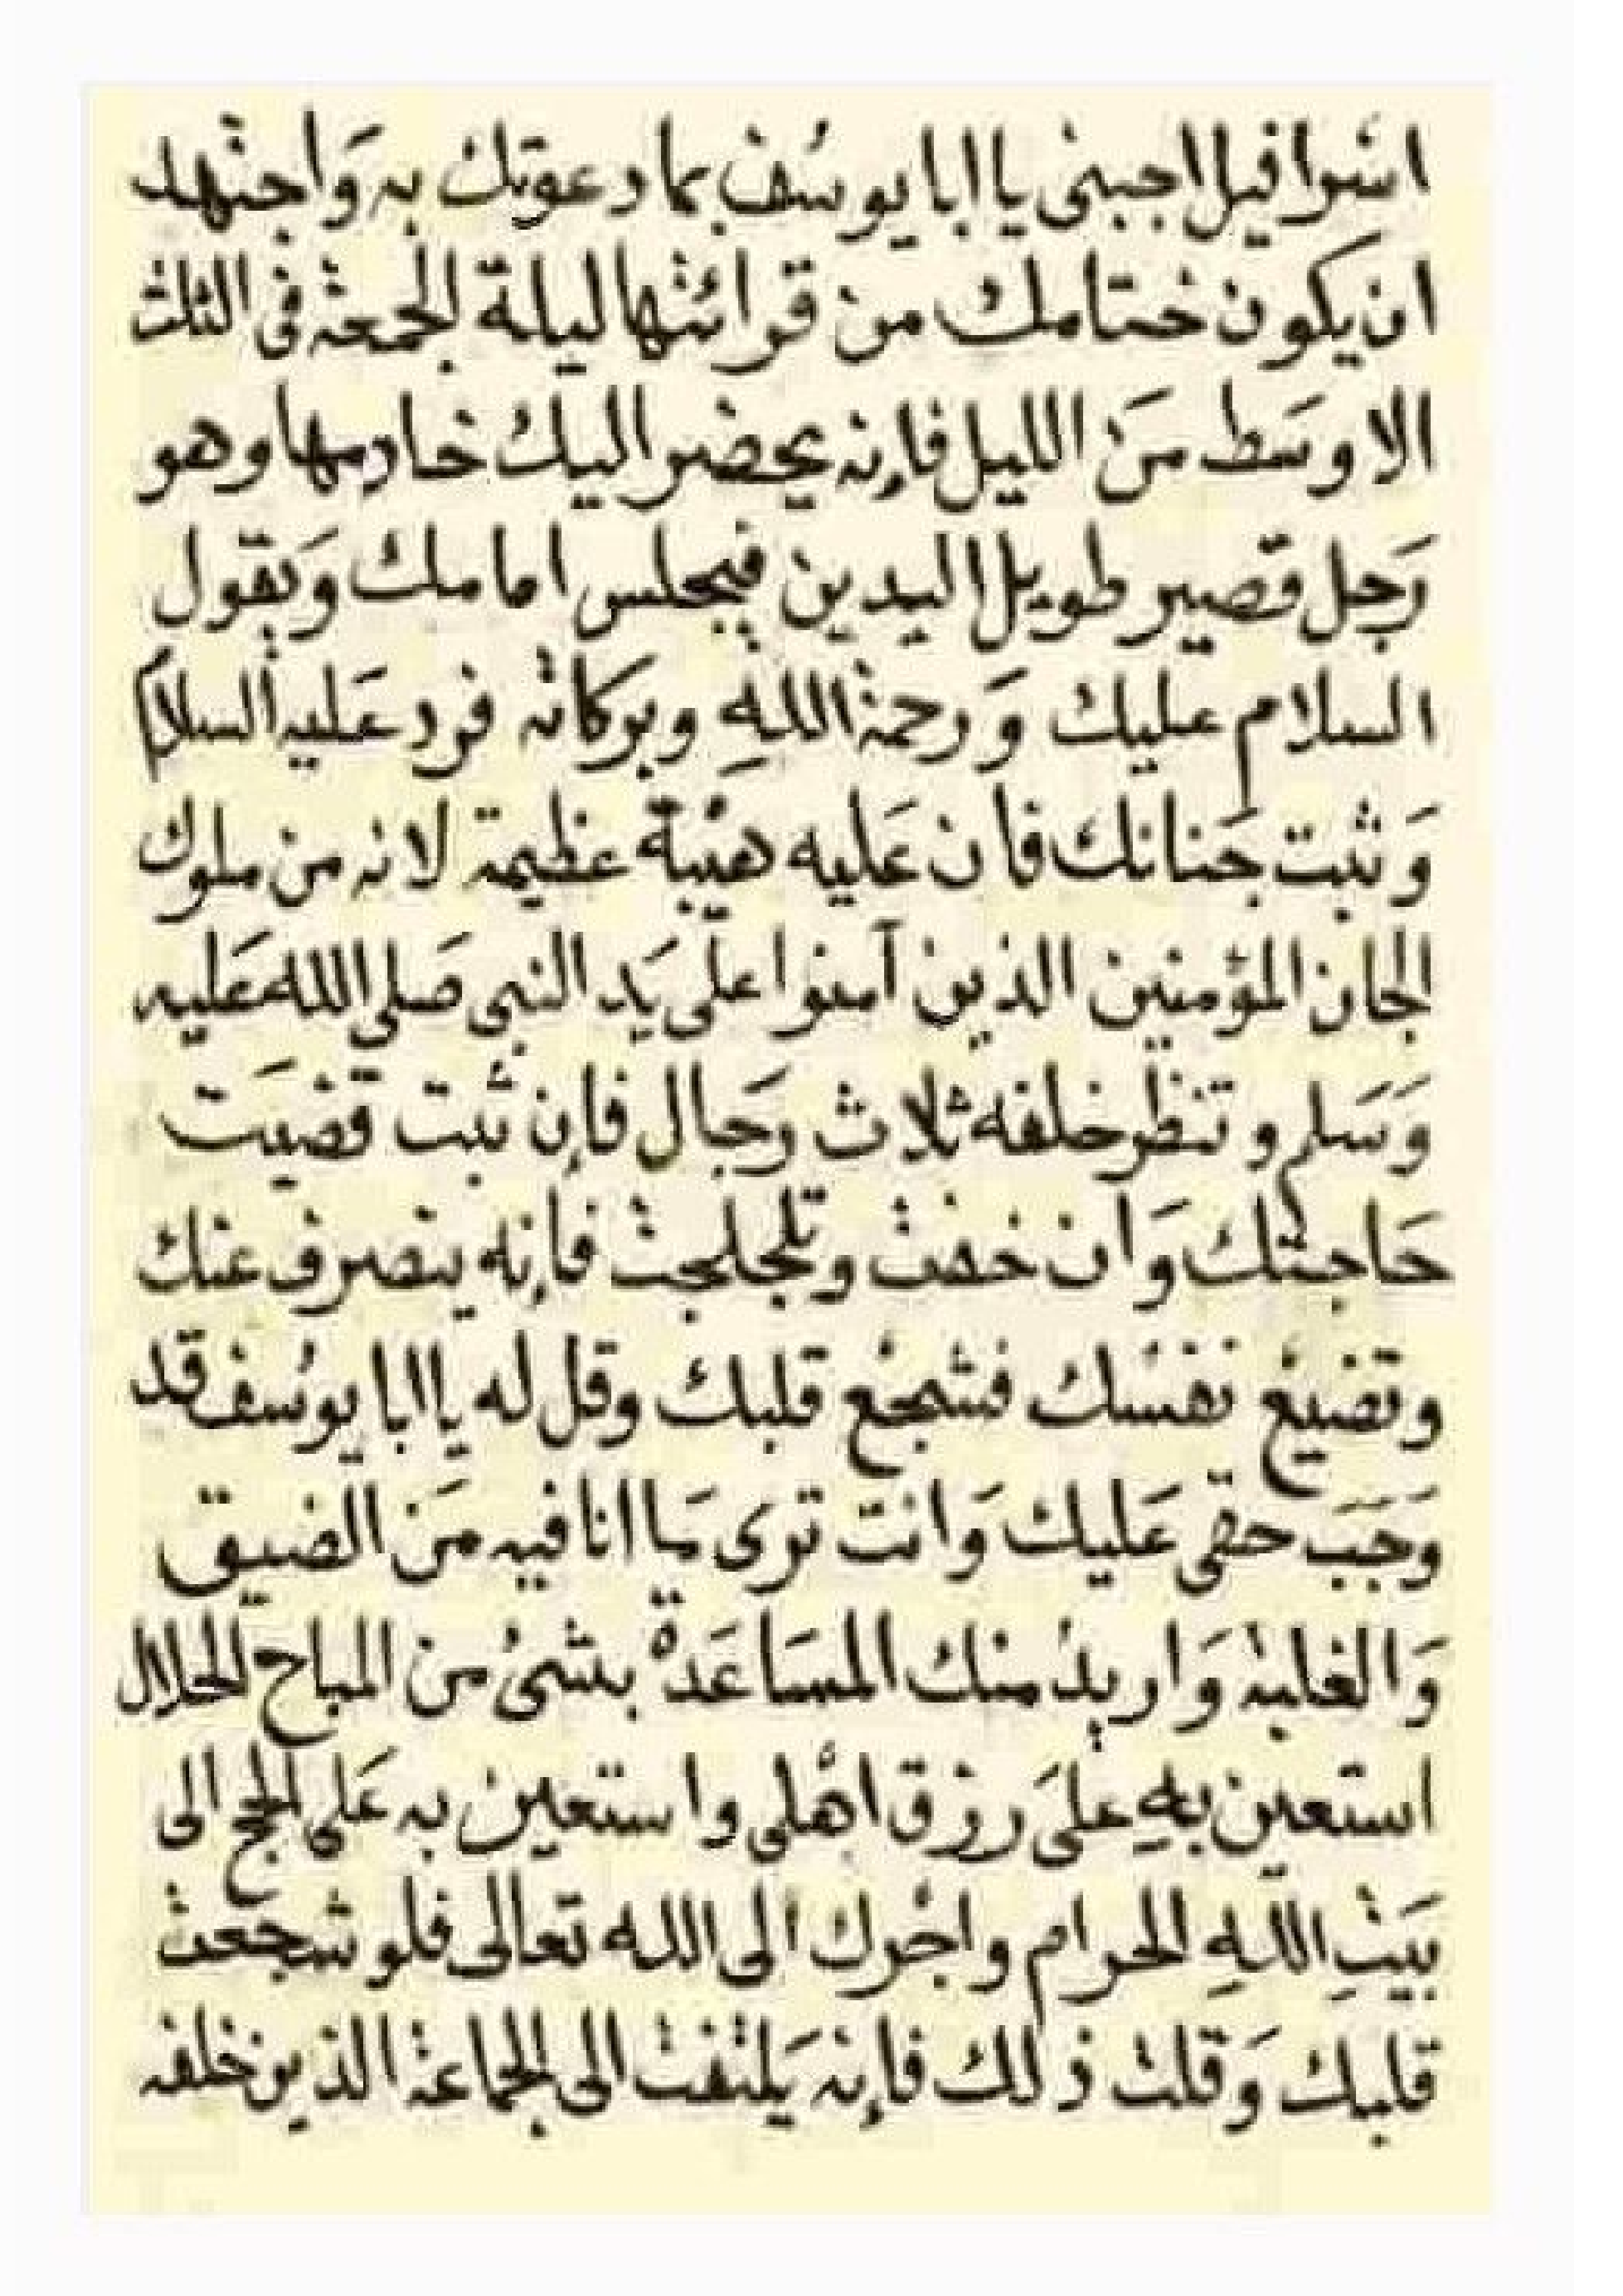 اسرافيل اجبنى يا ابا يوسف بما دعوتك به وَاجتهد
ان يكون ختامك من قرائتها ليلة الجمعة فى الثلث
الاوسَط منَ الليل فإنه يحضر اليك خادمها وهو
رَجل قصير طويل اليدين فيجلس امامك وَيقول
السلام عليك وَرحمة اللهِ وبركاته فرد عَليه السلام
وَثبت جَنانك فان عَليه هيبة عظيمة لانه من ملوك
الجان المؤمنين الذين آمنوا على يَد النبى صَلى الله عَليه
وَسَلم وتنظر خلفه ثلاث رجَال فإن ثبت قضيَت
حَاجتك وَان خفت وتلجلجت فإنه ينصرف عنك
وتضيع نفسك فشجع قلبك وقل له يا ابا يوسف قد
وَجَبَ حقى عَليك وَانت ترى مَا انا فيه مَن الضيق
وَالغلبة وَاريد منك المسَاعَدة بشىء من المباح الحلال
استعين بهِ علىَ رزق اهلى واستعين به عَلى الحج الى
بَيتِ اللهِ الحرام واجرك الى الله تعالى فلو شجعت
قلبك وَقلت ذلك فإنه يَلتفت الى الجماعة الذين خلفه